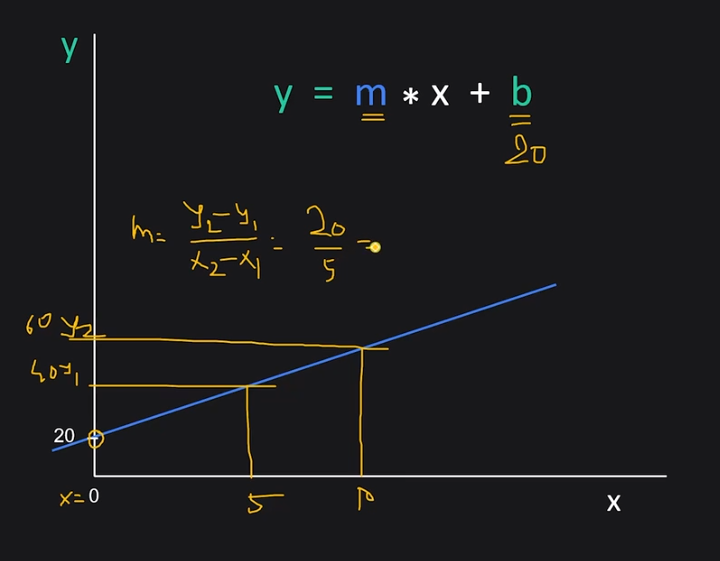 y
y = m * x + b
20
m = y2-y1/x2-x1 = 20/5 =
60 y2
40 y1
20
x=0 5 10 x